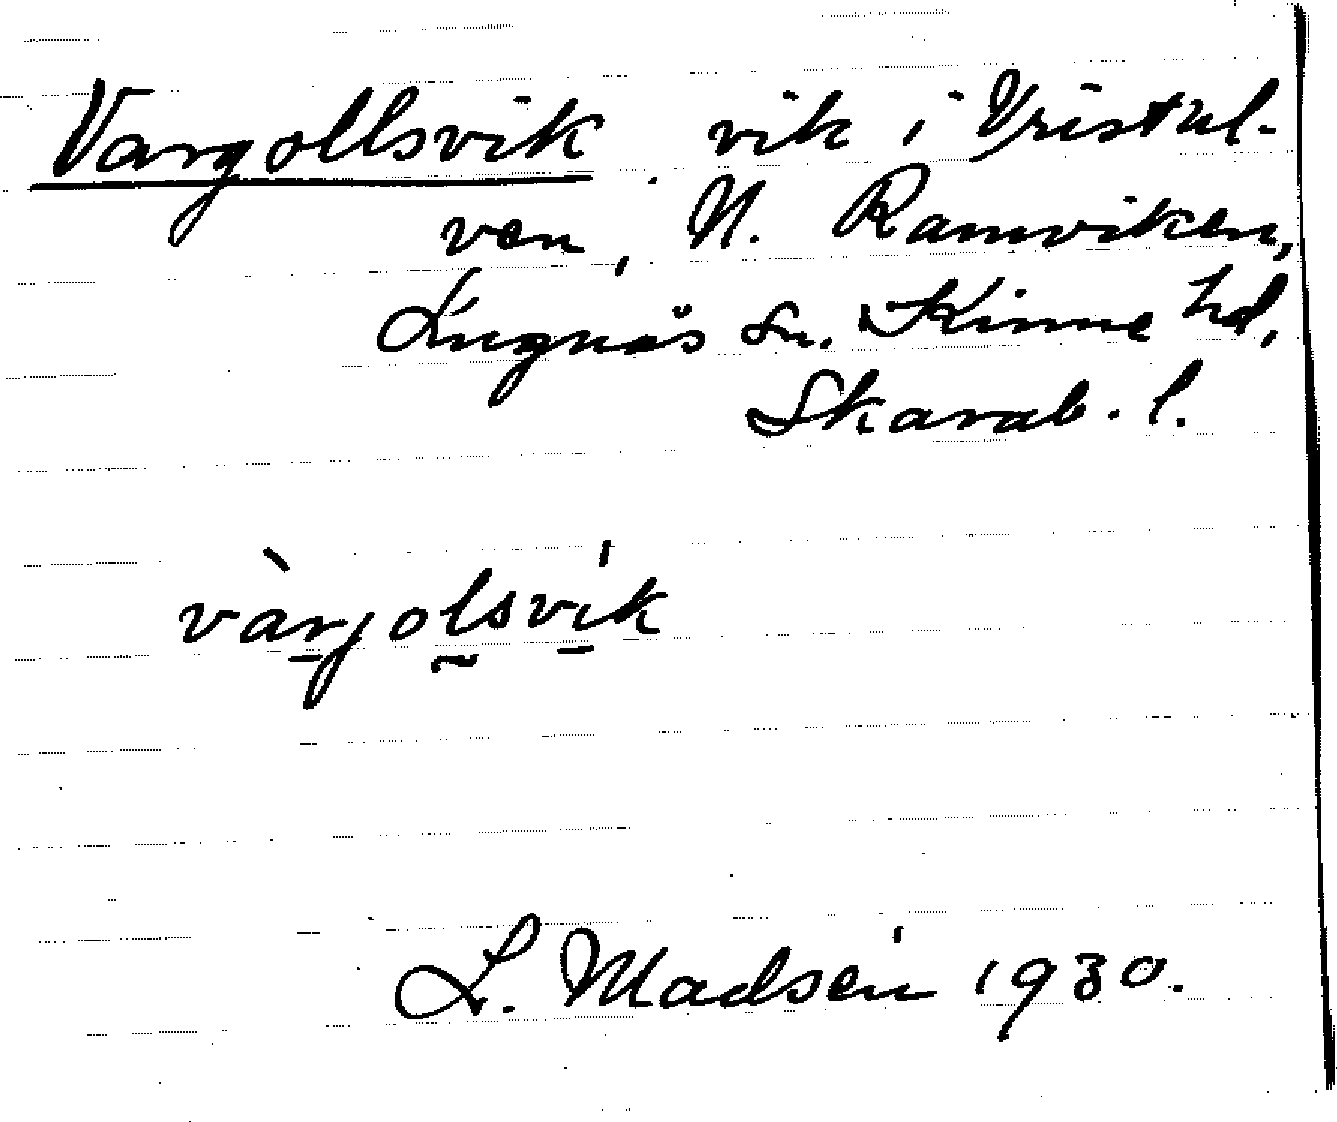 Vargollsvik vik i Vristul-
ven, N. Ramviken,
Lugnås sn. Kinne hd,
Skarab. l.
vàrjolsvík
L. Madsén 1930.